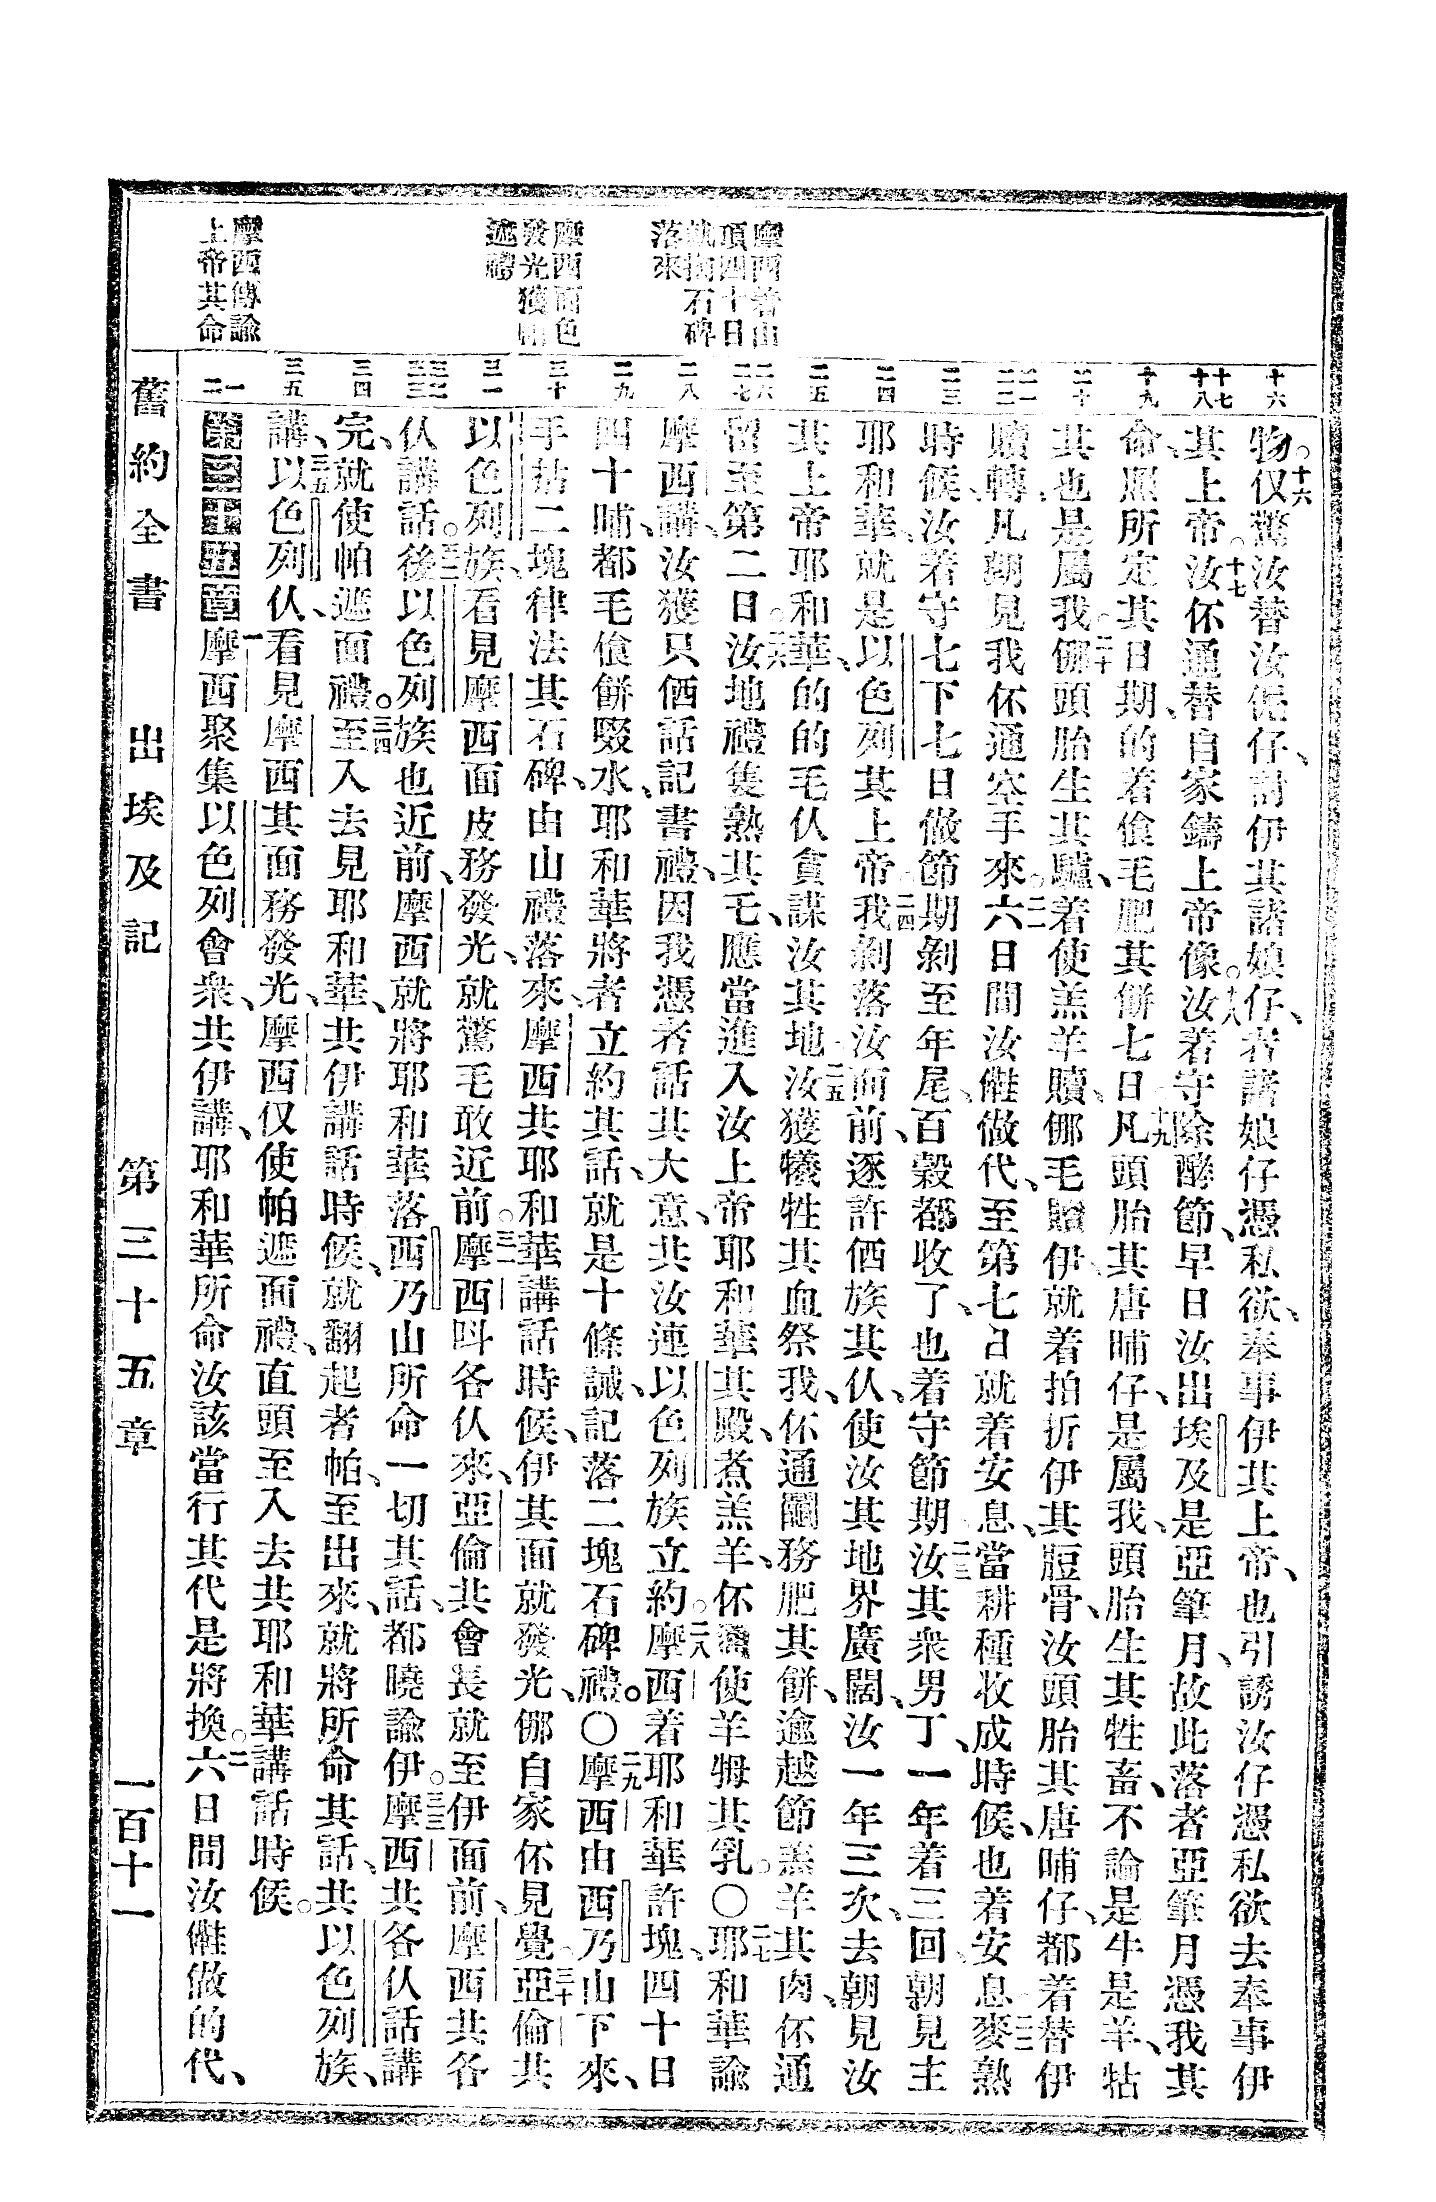 摩西着山
頂四十日
執掏石碑
落來
摩西面色
發光獲帕
遮禮
摩西傳諭
上帝其命
十六
十七
十八
十九
二十
二一
二二
二三
二四
二五
二六
二七
二八
二九
三十
三一
三二
三三
三四
三五
一
二
物。十六仅驚汝替汝𠆧仔、討伊其諸娘仔、者諸娘仔憑私欲、奉事伊其上帝、也引誘汝仔憑私欲去奉事伊
其上帝。十七汝伓通替自家鑄上帝像。十八汝着守除酵節、早日汝出埃及是亞筆月、故此落者亞筆月憑我其
命、照所定其日期、的着飡毛肥其餅七日。十九凡頭胎其唐晡仔、是屬我、頭胎生其牲畜、不論是牛是羊、牯
其也是屬我。二十㑚頭胎生其驢、着使羔羊贖、㑚毛贖伊、就着拍折伊其脰骨、汝頭胎其唐晡仔、都着替伊
贖轉、凡朝見我伓通空手來。二一六日間汝做代、至第七日就着安息、當耕種收成時候、也着安息。二二麥熟
時候、汝着守七下七日做節期、剝至年尾、百穀都收了、也着守節期。二三汝其衆男丁、一年着三回、朝見主
耶和華、就是以色列其上帝。二四我剝落汝面前、逐許㑚族其仈、使汝其地界廣闊、汝一年三次去朝見汝
其上帝耶和華、的的毛仈貪謀汝其地。二五汝獲犧牲其血祭我、伓通𫔶務肥其餅、逾越節羔羊其肉、伓通
留至第二日。二六汝地禮隻熟其乇、應當進入汝上帝耶和華其殿、煮羔羊、伓通使羊母其乳。〇二七耶和華諭
摩西講、汝獲只㑚話記書禮、因我憑者話其大意、共汝連以色列族立約。二八摩西着耶和華許塊、四十日
四十晡、都毛飡餅啜水、耶和華將者立約其話、就是十條誡、記落二塊石碑禮。〇二九摩西由西乃山下來、
手拈二塊律法其石碑、由山禮落來、摩西共耶和華講話時候、伊其面就發光、㑚自家伓見覺。三十亞倫共
以色列族、看見摩西面皮務發光、就驚毛敢近前。三一摩西叫各仈來、亞倫共會長就至伊面前、摩西共各
仈講話。三二後以色列族也近前、摩西就將耶和華落西乃山所命一切其話、都曉諭伊。三三摩西共各仈話講
完、就使帕遮面禮。三四至入去見耶和華、共伊講話時候、就翻起者帕、至出來、就將所命其話、共以色列族、
講、三五以色列仈、看見摩西其面務發光、摩西仅使帕遮面禮、直頭至入去共耶和華講話時候。
第三十五章一摩西聚集以色列會衆、共伊講、耶和華所命汝該當行其代、是將換。二六日間汝做的代、
舊約全書　出埃及記　第三十五章　一百十一